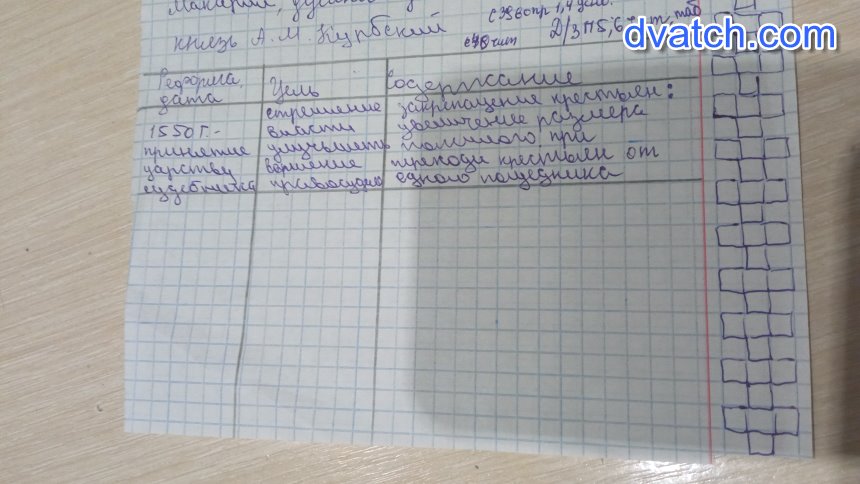 Макарий,
князь А. М. Курбский
Д/з П5,
dvatch.com
Реформа, дата
Цель
Содержание
1550 г. -
принятие
царству
судебника
стремление
власти
улучшить
вершение
правосудия
закрепощение крестьян:
увеличение размера
пожилого при
переходе крестьян от
одного помещика